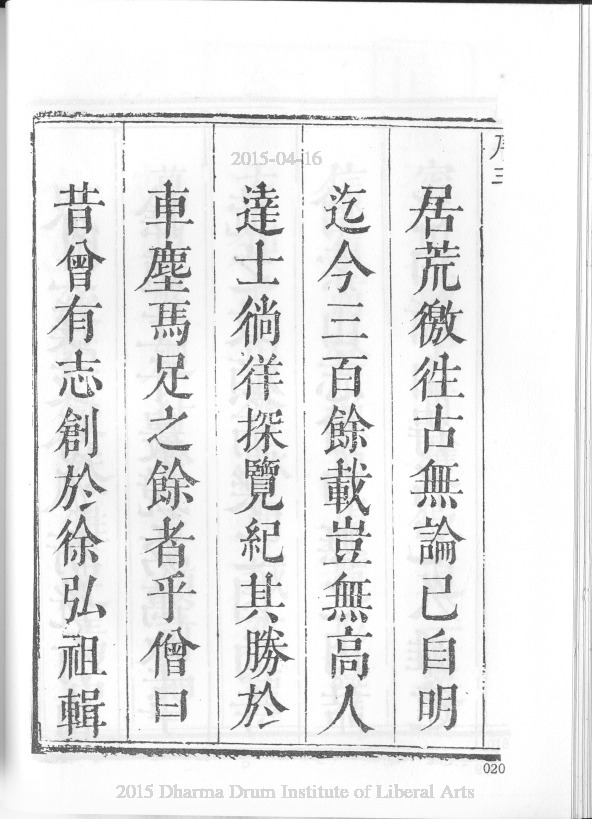 序三
居荒徼徃古無論已自明
迄今三百餘載豈無高人
達士徜徉探覽紀其勝於
車塵馬足之餘者乎僧曰
昔曾有志創於徐弘祖輯
2015-04-16
020
2015 Dharma Drum Institute of Liberal Arts